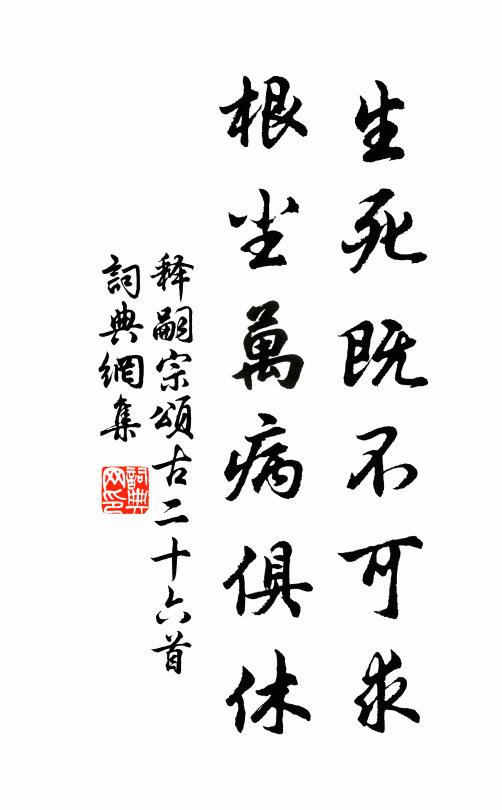 生死既不可求
根尘萬病俱休
释嗣宗頌古二十六首
詞典網集
詞典网印